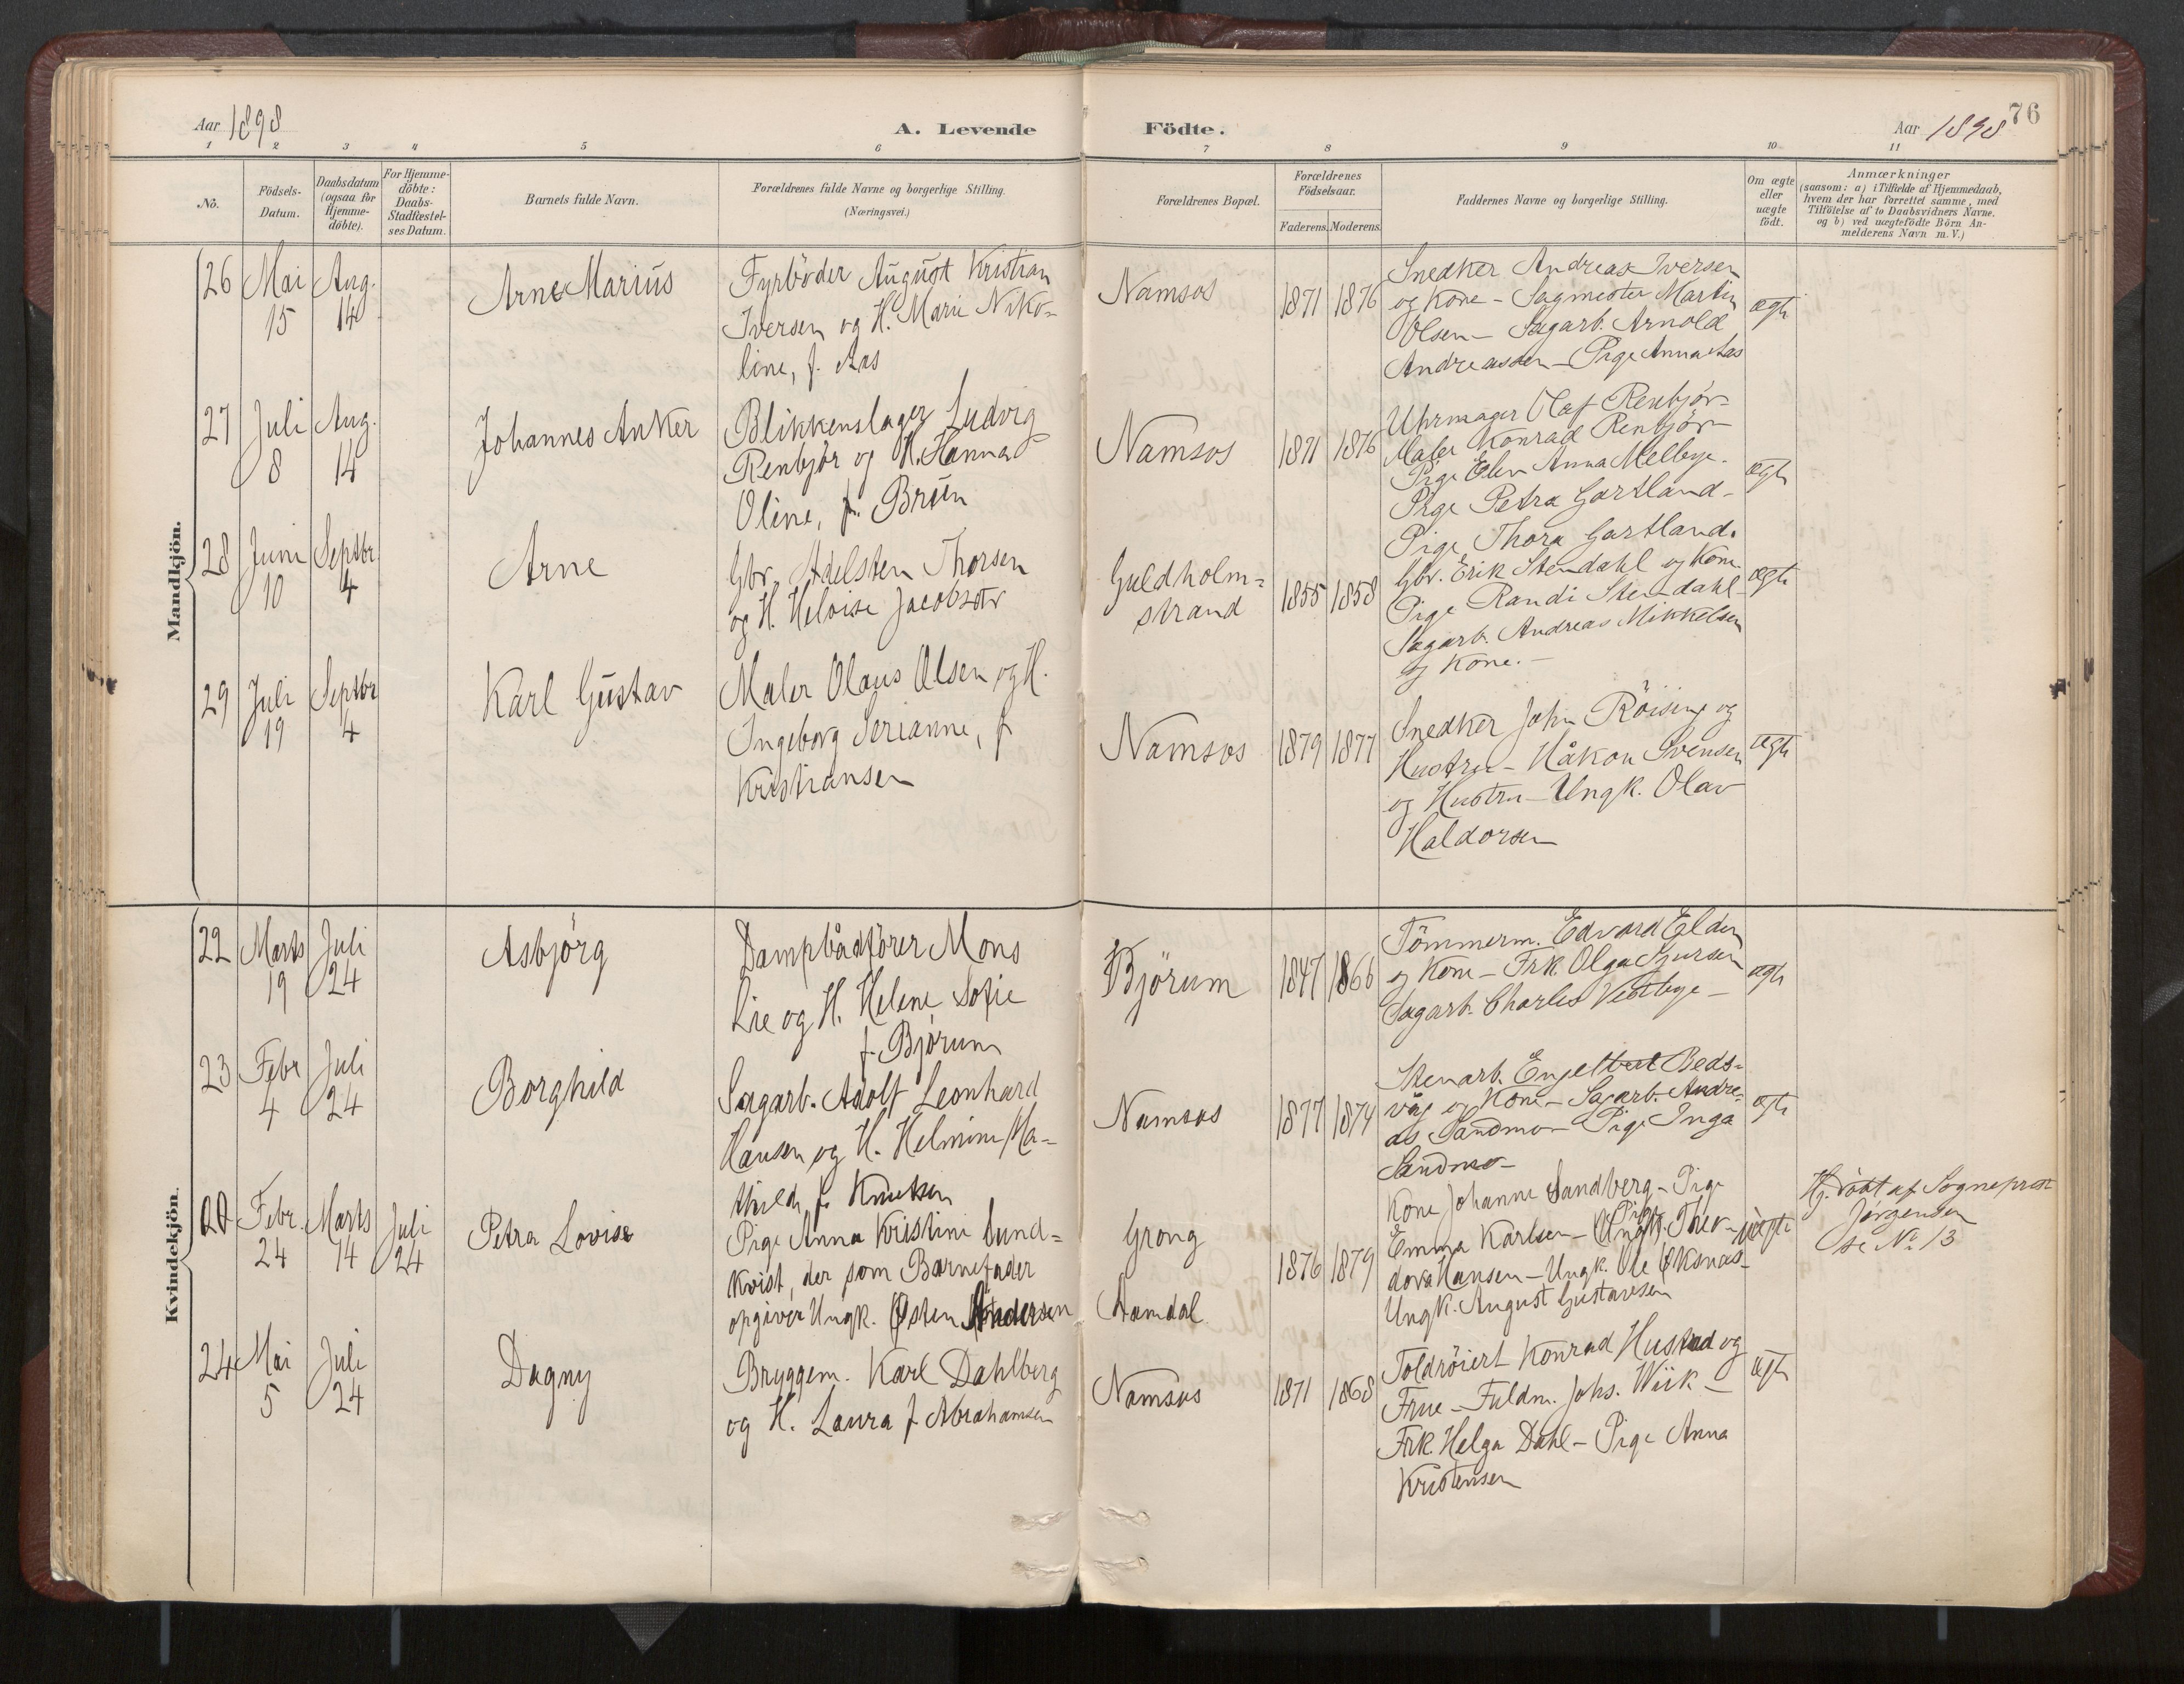 Aar 1898
A. Levende Födte.
Aar 1898
76
1 2 3 4 5 6 7 8 9 10 11
No.
Födsels-Datum.
Daabsdatum (ogsaa for Hjemme-döbte).
For Hjemme-döbte: Daabs-Stadfæstel-ses Datum.
Barnets fulde Navn.
Forældrenes fulde Navne og borgerlige Stilling.
(Næringsvei.)
Forældrenes Bopæl.
Forældrenes Födselsaar.
Faderens. Moderens.
Faddernes Navne og borgerlige Stilling.
Om ægte eller uægte födt.
Anmærkninger
(saasom: a) i Tilfælde af Hjemmedaab,
hvem der har forrettet samme, med
Tilföielse af to Daabsvidners Navne.
og b) ved uægtefödte Börn An-
melderens Navn m. V.)
Mandkjön.
26 Mai 15 Aug. 14
Arne Marius
Fyrböder August Kristian
Iversen og H. Marie Niko-
line, f. Aas
Namsos
1871 1876
Snedker Andreas Iversen
og Kone - Sagmester Martin
Olsen - Sagarb. Arnold
Andreassen - Pige Anna Aas
ægte
27 Juli 8 Aug. 14
Johannes Anker
Blikkenslager Ludvig
Renbjör og H. Hanna
Oline, f. Brun
Namsos
1871 1876
Uhrmager Olaf Renbjör-
Maler Konrad Renbjör-
Pige Elen Anna Melbye.
Pige Petra Gartland-
Pige Thora Gartland.
ægte
28 Juni 10 Septbr 4
Arne
Gbr. Adelsten Thorsen
og H. Heloise Jacobsdtr
Guldholm=
strand
1855 1858
Gbr. Erik Stendahl og Kone
Pige Randi Stendahl-
Sagarb. Andreas Mikkelsen
og Kone. -
ægte
29 Juli 19 Septbr 4
Karl Gustav
Maler Olaus Olsen og H.
Ingeborg Serianne, f
Kristiansen
Namsos
1879 1877
Snedker John Röising og
Hustru - Håkon Svensen
og Hustru - Ungk. Olav
Haldorsen
ægte
Kvindekjön.
22 Marts 19 Juli 24
Asbjörg
Dampbådförer Mons
Lie og H. Helene Sofie
f. Björum
Björum
1847 1866
Tömmerm. Edvard Elden
og Kone - Frk. Olga Sjursen
Sagarb. Charles Vestbye -
ægte
23 Febr 4 Juli 24
Borghild
Sagarb. Adolf Leonhard
Hansen og H. Helmine Ma-
thilde f. Knutsen
Namsos
1877 1874
Stenarb. Engelbert Beds=
våg og Kone - Sagarb. Andre-
as Sandmo - Pige Inga
Sandmo -
ægte
Febr. 24 Marts 14 Juli 24
Petra Lovise
Pige Anna Kristine Lund=
kvist, der som Barnefader
opgiver Ungk. Østen Andersen
Grong
Aamdal
1876 1879
Kone Johanne Sandberg - Pige
Emma Karlsen - Pige Theo-
dora Hansen - Ungk. Ole Öksnas-
Ungk. August Gustavsen
uægte
Hj. döbt af Sogneprest
Jørgensen
se No 13
24 Mai 5 Juli 24
Dagny
Bryggem. Karl Dahlberg
og H. Laura f Abrahamsen
Namsos
1871 1868
Toldröiert Konrad Hustad og
Frue - Fuldm. Johs. Wiik -
Frk Helga Dahl - Pige Anna
Kristensen
ægte